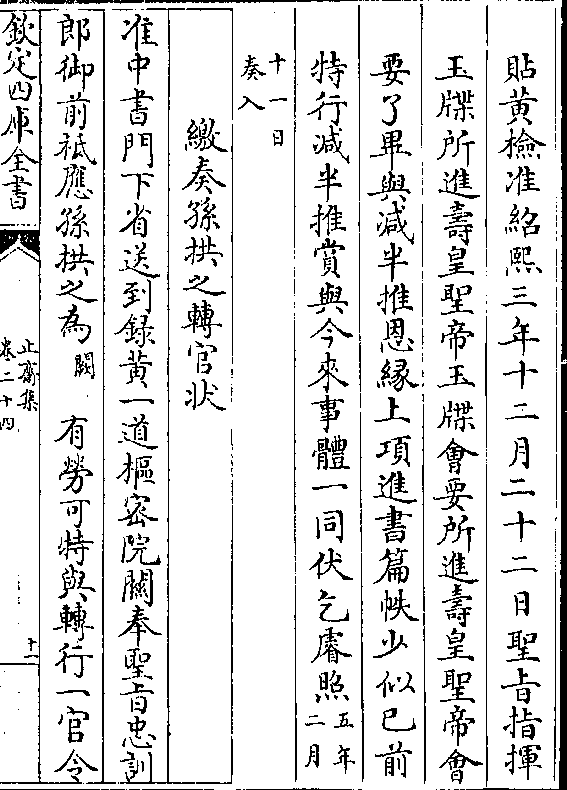 貼黄檢准紹熙三年十二月二十二日聖旨指揮
玉牒所進壽皇聖帝玉牒會要所進壽皇聖帝會
要了畢與減半推恩緣上項進書篇帙少似已前
特行減半推賞與今來事體一同伏乞睿照五年二月
十一日奏入
繳奏孫拱之轉官狀
准中書門下省送到録黄一道樞密院關奉聖旨忠訓
郎御前祗應孫拱之為闕有勞可特與轉行一官令
欽定四庫全書
止齋集
卷二十四
十一